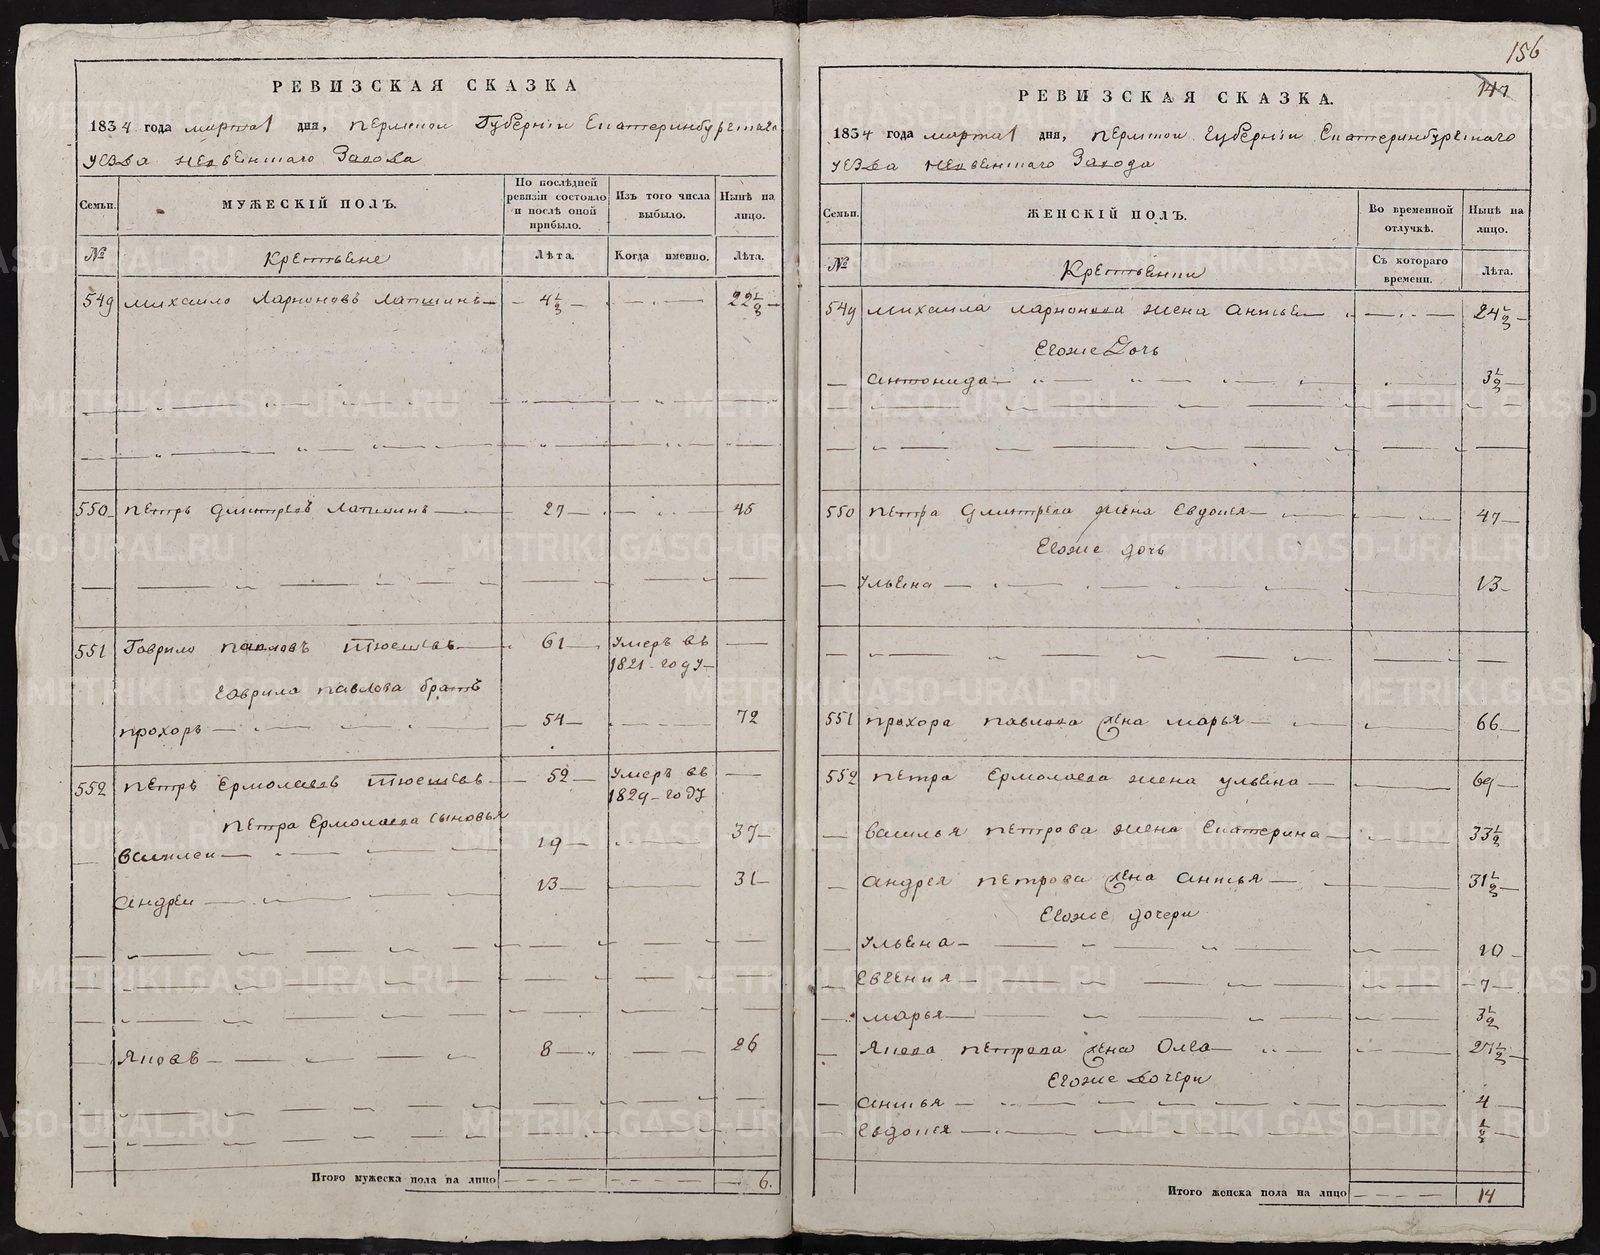 РЕВИЗСКАЯ СКАЗКА
1834 года марта 1 дня, Пермской Губернии Екатеринбургскаго
уезда Завода
Семьи. МУЖЕСКІЙ ПОЛЪ. По послѣдней ревизіи состояло и послѣ оной прибыло. Изъ того числа выбыло. Нынѣ на лицо.
№ Крестьяне Лѣта. Когда именно. Лѣта.
549 Михаило Ларионовъ Лапшинъ 4½ 22½
550 Петръ Дмитревъ Лапшинъ 27 45
551 Гаврило Павловъ 61 Умеръ въ
1821 году
Гаврила Павлова братъ
Прохоръ 54 72
552 Петръ Ермолаевъ 52 Умеръ въ
1829 году
Петра Ермолаева сыновья
Василеи 19 37
Андреи 13 31
Яковъ 8 26
Итого мужеска пола на лицо 6.
156
141
РЕВИЗСКАЯ СКАЗКА.
1834 года марта 1 дня, Пермской Губернии Екатеринбургскаго
уезда Завода
Семьи. ЖЕНСКІЙ ПОЛЪ. Во временной отлучкѣ. Нынѣ на лицо.
№ Крестьянки Съ котораго времени. Лѣта.
549 Михаила Ларионова жена Анисья 24½
Егоже Дочь
Антонида 3½
550 Петра Дмитрева жена Евдокея 47
Егоже дочь
Ульяна 13
551 Прохора Павлова жена Марья 66
552 Петра Ермолаева жена Ульяна 69
Василья Петрова жена Екатерина 33½
Андрея Петрова жена Анисья 31½
Егоже дочери
Ульяна 10
Евгения 7
Марья 3½
Якова Петрова жена 27½
Егоже Дочери
Анисья 4
Евдокея ½
Итого женска пола на лицо 14
METRIKI.GASO-URAL.RU